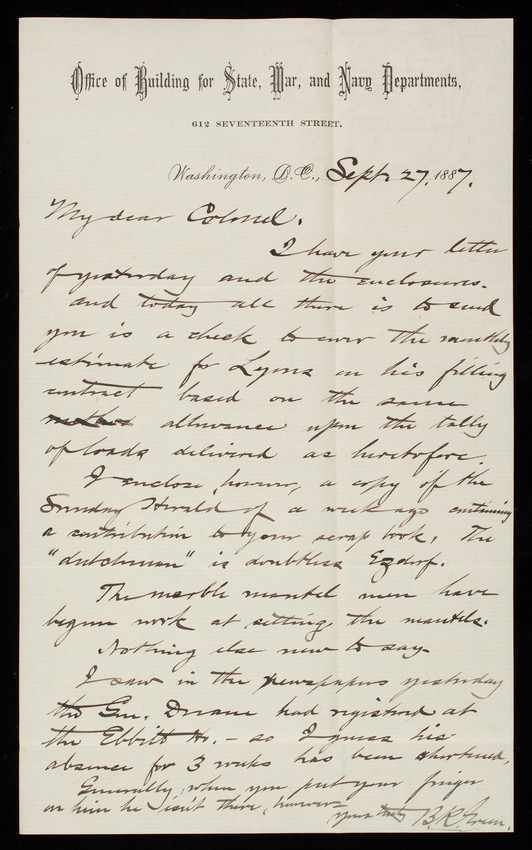 Office of Building for State, War, and Navy Departments,
612 SEVENTEENTH STREET,
Washington, D.C., Sept. 27, 1887.
My dear Colonel.
I have your letter
of yesterday and the enclosures.
and today all there is to send
you is a check to cover the monthly
estimate for Lyons on his filling
contract based on the same
method allowance upon the tally
of loads delivered as heretofore.
I enclose, however, a copy of the
Sunday Herald of a week ago containing
a contribution to your scrap book. The
"dutchman" is doubtless Ezdorf.
The marble mantel men have
begun work at setting the mantels.
Nothing else new to say.
I saw in the newspapers yesterday
tht Gen. Duane had registered at
the Ebbitt Ho. - so I guess his
absence for 3 weeks has been shortened.
Generally, when you put your finger
on him he isn't there, however
Yours truly B.R. Green.